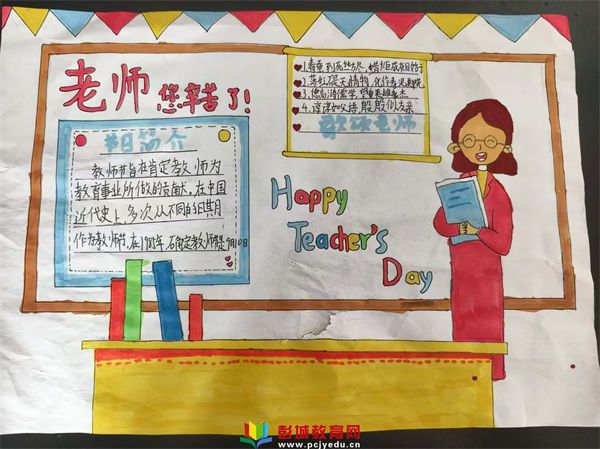 老师 您辛苦了!
节日简介
教师节旨在肯定教师为
教育事业所做的贡献,在中国
近代史上,多次从不同的日期
作为教师节,在1985年,
教师节是9月10日
1.春蚕到死丝方尽,
2.落红不是无情物,
4.谆谆如父语,殷殷似友亲
歌颂老师
Happy
Teacher's
Day
彭城教育网
www.pcjyedu.cn